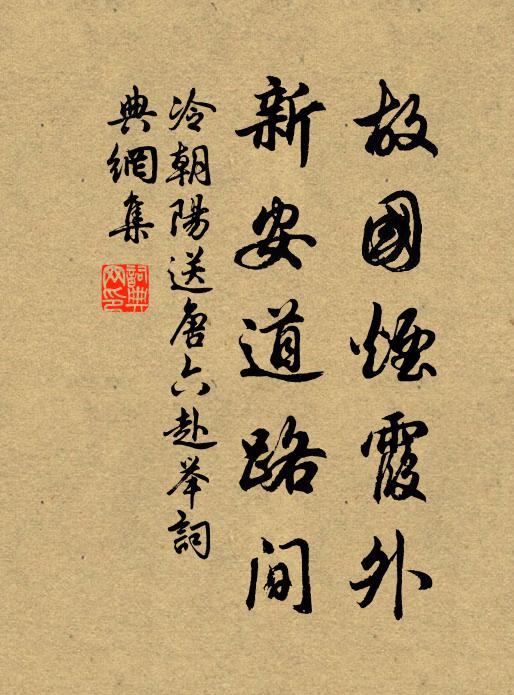 故國煙霞外
新安道路間
冷朝陽送唐六赴举詞
典網集
詞典
网印